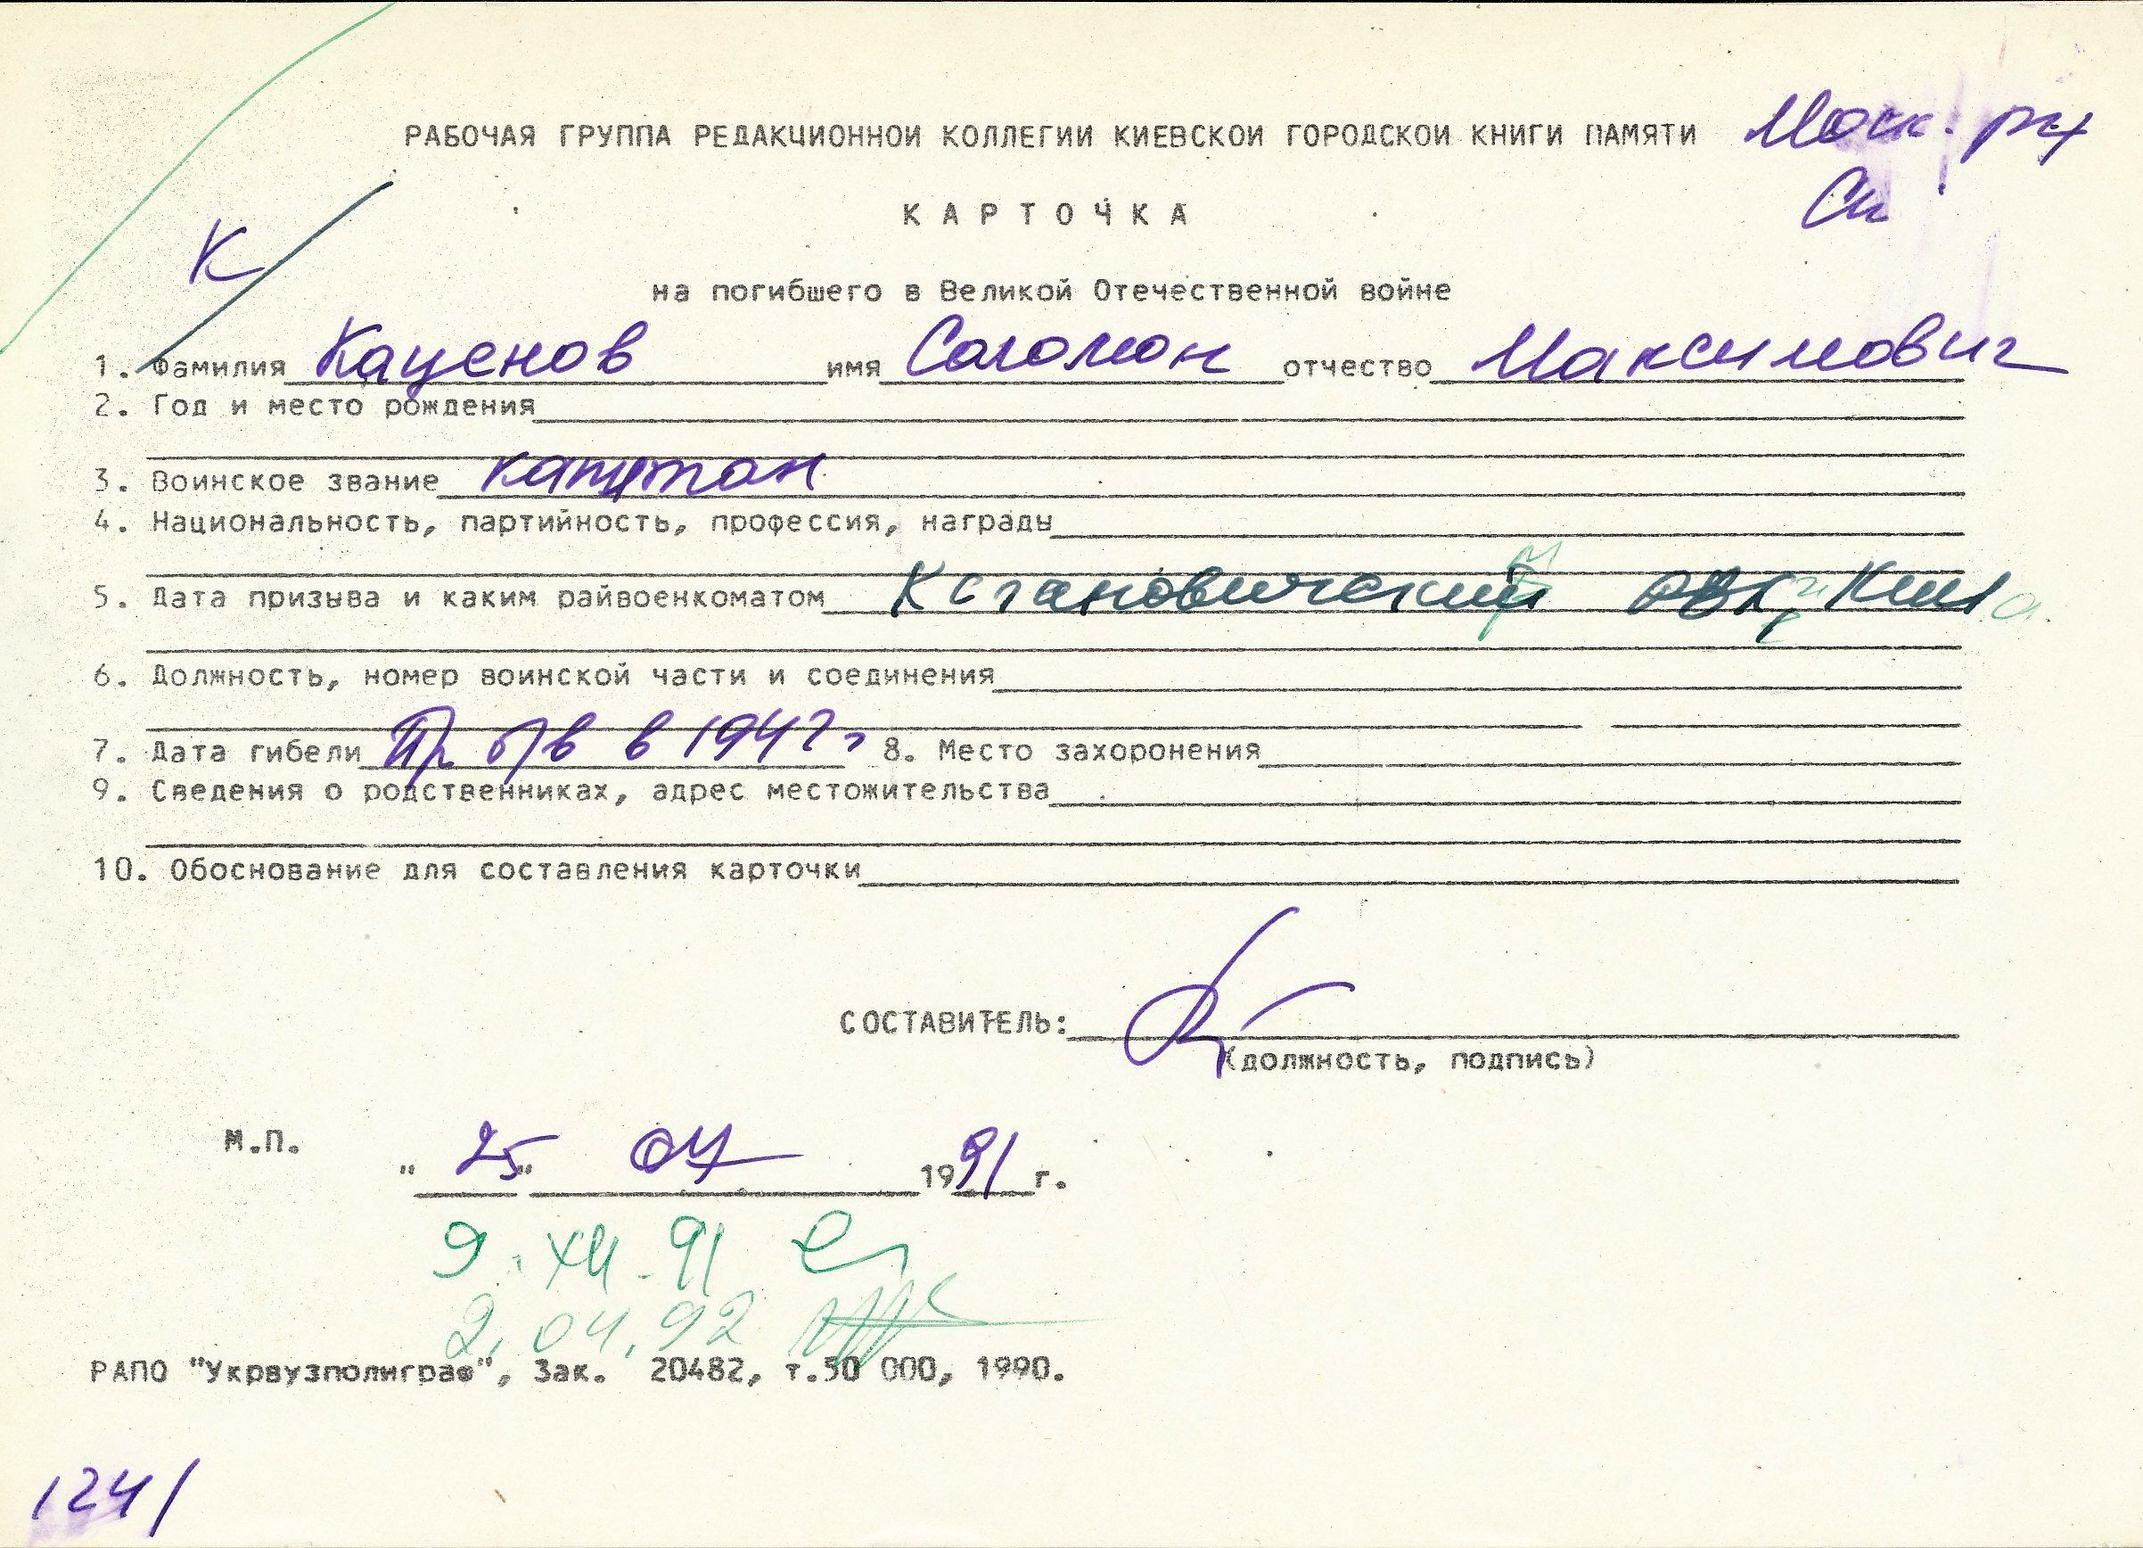 РАБОЧАЯ ГРУППА РЕДАКЦИОННОЙ КОЛЛЕГИИ КИЕВСКОЙ ГОРОДСКОЙ КНИГИ ПАМЯТИ Моск. рк
КАРТОЧКА
К
на погибшего в Великой Отечественной войне
1. Фамилия Каценов имя Соломон отчество Максимович
2. Год и место рождения
3. Воинское звание капитан
4. Национальность, партийность, профессия, награды
5. Дата призыва и каким райвоенкоматом Кагановический
6. Должность, номер воинской части и соединения
7. Дата гибели Пр б/в в 1942 г 8. Место захоронения
9. Сведения о родственниках, адрес местожительства
10. Обоснование для составления карточки
СОСТАВИТЕЛЬ:
(должность, подпись)
М.П.
"25" 07 1991 г.
9.XII.91
2.04.92
РАПО "Укрвузполиграф", Зак. 20482, т.50 000, 1990.
1241